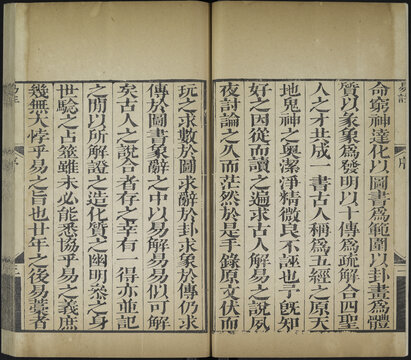 命窮神達化以圖書爲範圍以卦畫爲體
質以彖象爲發明以十傳爲疏解合四聖
人之才共成一書古人稱爲五經之原天
地鬼神之奥潔淨精微良不誣也予旣知
好之因從而讀之遍求古人解易之說夙
夜討論之久而茫然於是手錄原文伏而
玩之求數於圖求辭於卦求象於傳仍求
傳於圖書象辭之中以易解易似可解
矣古人之說合者存之幸有一得亦並記
之閒以所解證之造化質之幽明叅之身
世驗之占筮雖未必能悉協乎易之義庶
幾無大悖乎易之旨也廿年之後易藁者
序
二
序
三